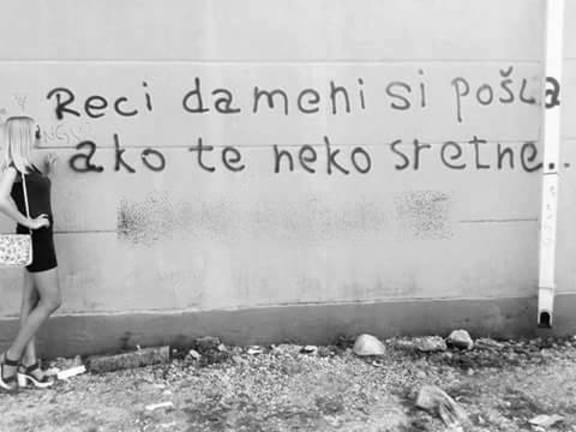 Reci da meni si pošla
ako te neko sretne..